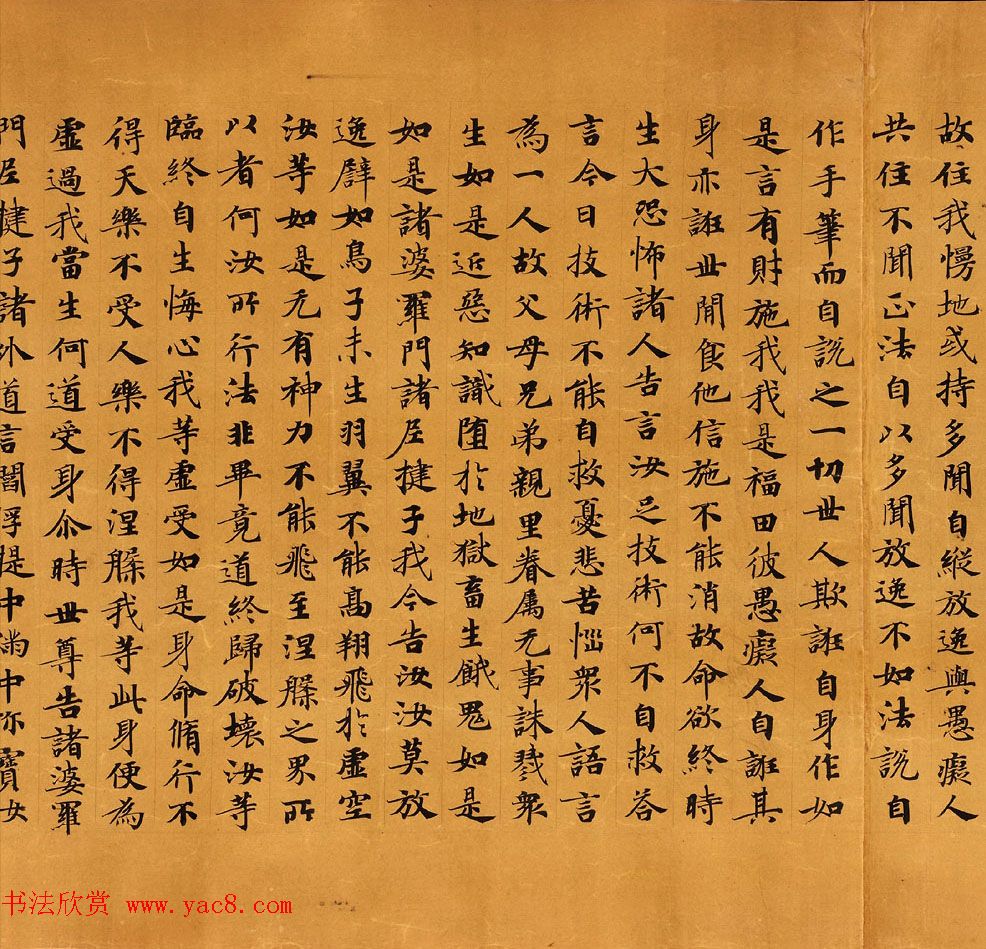 故住我慢地或持多聞自縱放逸與愚癡人
共住不聞正法自以多聞放逸不如法說自
作手筆而自說之一切世人欺誑自身作如
是言有財施我我是福田彼愚癡人自誑其
身亦誑世間食他信施不能消故命欲終時
生大恐怖諸人告言汝足技術何不自救答
言今日技術不能自救憂悲苦惱眾人語言
為一人故父母兄弟親里眷属无事誅戮眾
生如是近惡知識墮於地獄畜生餓鬼如是
如是諸婆羅門諸尼揵子我今告汝汝莫放
逸譬如鳥子未生羽翼不能高翔飛於虛空
汝等如是无有神力不能飛至涅槃之界所
以者何汝所行法非畢竟道終歸破壞汝等
臨終自生悔心我等虛受如是身命脩行不
得天樂不受人樂不得涅槃我等此身便為
虛過我當生何道受身尒時世尊告諸婆羅
門尼揵子諸外道言閻浮提中滿中珎寶女
书法欣赏 www.yac8.com